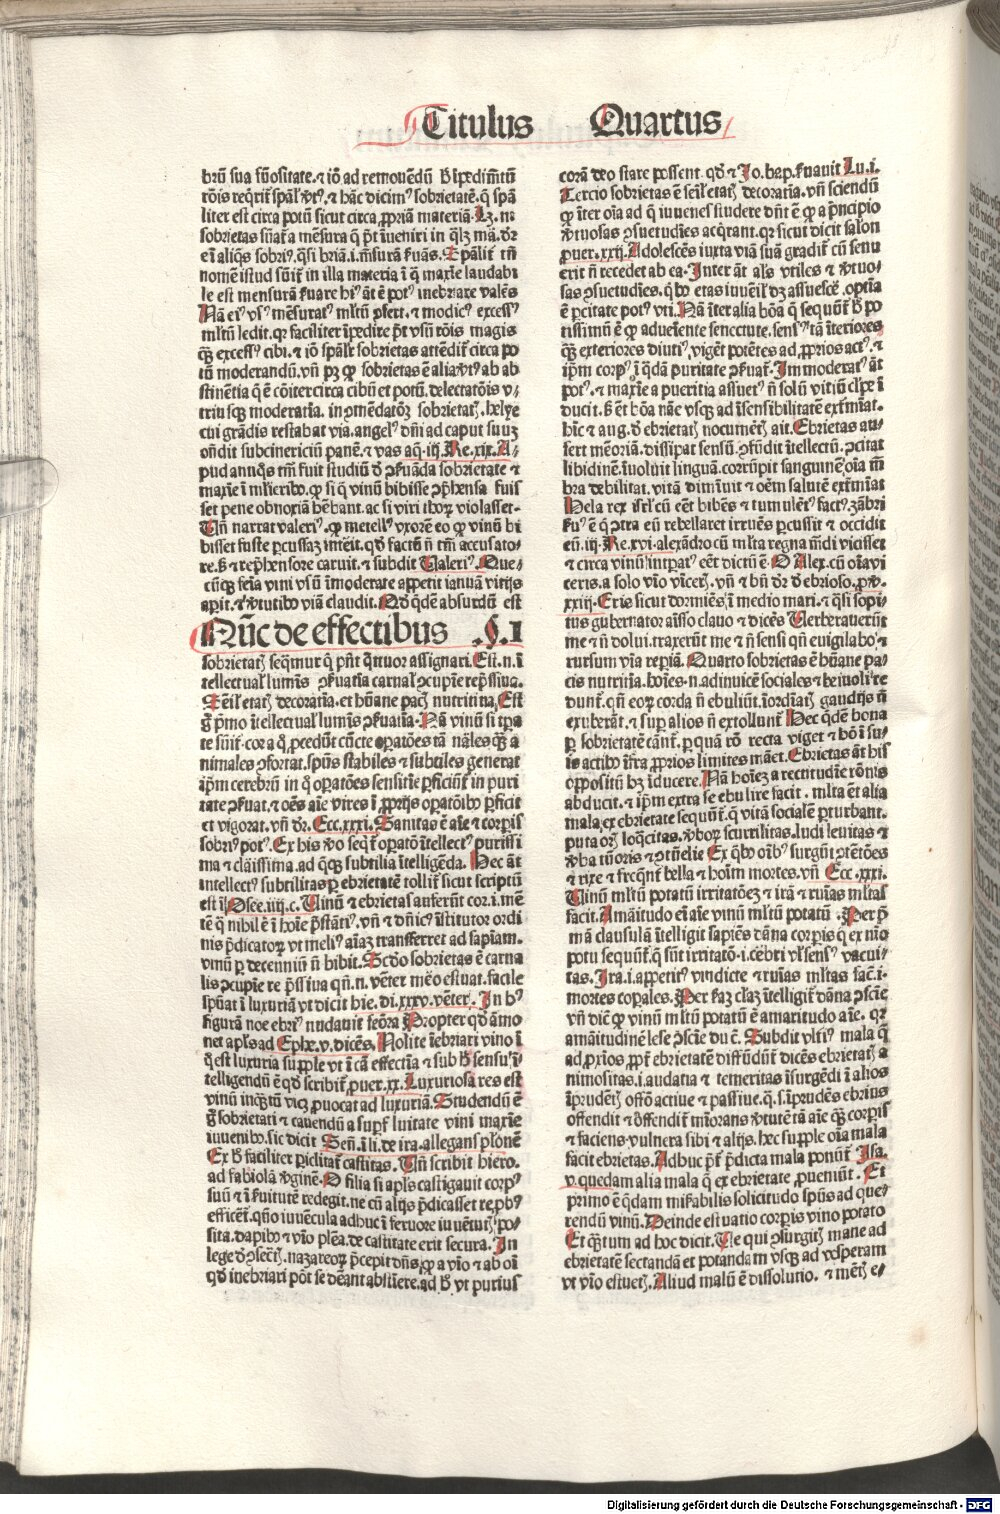 Titulus Quartus
brũ sua fũositate. ⁊ iõ ad remouendũ ħ ĩpedimẽtũ
rõis reqrit spãl ꝟtꝰ. ⁊ hãc dicimꝰ sobrietatẽ. q̃ spã
liter est circa potũ sicut circa ꝓpriã materiã.
sobrietas
nomẽ istud in illa materia ĩ q̃ maxĩe laudabi
le est mensurã ẽuare
Nã eiꝰ vsꝰ mẽsuratꝰ mltũ ꝓfert. ⁊ modicꝰ excessꝰ
mltũ ledit. qr faciliter ĩpedire põt vsũ rõis magis
q̃ȝ excessꝰ cibi. ⁊ iõ spãlr sobrietas attẽdit circa po
tũ moderandũ. vñ pȝ ꝙ sobrietas ẽ alia ꝟtꝰ ab ab
stinẽtia q̃ ẽ cõiter circa cibũ et potũ. delectatõis v⸗
triusq̃ȝ moderatĩa. in ꝯmẽdatõȝ sobrietatꝭ. helye
cui grãdis restabat via. angelꝰ dñi ad caput suuȝ
oñdit subcinericiũ panẽ. ⁊ vas aq̃. iij. Re. xix. A⸗
pud antiq̃s tm̃ fuit studiũ ð ꝯseruãda sobrietate ⁊
maxĩe ĩ mĩeribꝰ. ꝙ si q̃ vinũ bibisse ꝯp̃hensa fuis
set pene obnoxia hẽbant. ac si viri thoꝝ violasset.
Uñ narrat valeriꝰ. ꝙ metellꝰ vxorẽ eo ꝙ vinũ bi
bisset fuste percussaȝ ĩteẽit. qð factũ ñ tm̃ accusato⸗
re. ẞ ⁊ rep̃hensore caruit. ⁊ subdit Ualeriꝰ. Que⸗
cũq̃ȝ feĩa vini vsũ ĩmoderate appetit ianuã vitijs
apit. ⁊ ꝟtutibꝰ viã claudit. Qð q̃dẽ absurdũ est
Nũc de effectibus .§.I
sobrietatꝭ seq̃mur q̃ pñt q̃ttuor assignari. Est. n. ĩ
tellectual lumĩs ꝯseruatĩa carnal ꝯcupiẽ rep̃ssiua.
etatꝭ decoratĩa. et hũane pacꝭ nutritĩa. Est
g̃ pmo ĩtellectual lumĩs ꝯseruatĩa. Nã vinũ si tp̃a
te sũit. cor a q̃ ꝓcedũt cũcte oꝑatões tã nãles q̃ȝ a
nimales ꝯfortat. spũs stabiles ⁊ subtiles generat
ip̃m cerebrũ in q̃ oꝑatões sensitĩe ꝑficiũt in puri
tate ꝯseruat. ⁊ oẽs aĩe vires ĩ ꝓprijs oꝑatõibꝰ ꝑficit
et vigorat. vñ dr̃. Ecc. xxxi. Sanitas ẽ aĩe ⁊ corpis
sobriꝰ potꝰ. Ex his ꝟo seq̃t oꝑatõ ĩtellectꝰ purissi
ma ⁊ clãissima. ad q̃cȝ subtilia ĩtelligẽda. Hec ãt
intellectꝰ subtilitas ꝑ ebrietatẽ tollit sicut scriptũ
est ĩ Osee. iiij. c. Uinũ ⁊ ebrietas auferũt cor. i. mẽ
tẽ q̃ nihil ẽ ĩ hoĩe p̃stãtꝰ. vñ ⁊ dñicꝰ ĩstitutor ordi
nis p̃dicatoꝝ vt meliꝰ aĩaȝ transferret ad sapĩam.
vinũ ꝑ decenniũ ñ bibit. Scðo sobrietas ẽ carna
lis ꝯcupĩe rep̃ssiua qñ. n. vẽter meo estuat. facile
spũat ĩ luxuriã vt dicit hie. di. xxxv. vẽter. In hꝰ
figurã noe ebriꝰ nudauit feõra Propter qð ãmo
net apl̃s ad Ephe. v. dicẽs. Nolite ĩebriari vino ĩ
q̃ est luxuria supple vt ĩ cã effectĩa ⁊ sub ħ sensu ĩ
telligendũ ẽ qð scribit. ꝓuer. xx. Luxuriosa res est
vinũ inq̃tũ viȝ ꝓuocat ad luxuriã. Studendũ ẽ
g̃ sobrietati ⁊ cauendũ a supfluitate vini maxĩe
iuuenibꝰ. sic dicit Señ. ĩ li. de ira. allegans plõnẽ
Ex ħ faciliter piclitat castitas. Uñ scribit hiero.
ad fabiolã ꝟginẽ. O filia si apl̃s castigauit corpꝰ
suũ ⁊ ĩ seruitutẽ redegit. ne cũ alijs p̃dicasset reꝓbꝰ
efficeret. quõ iuuẽcula adhuc ĩ feruore iuuẽtutꝭ po⸗
sita. dapibꝰ ⁊ vĩo plẽa. de castitate erit secura. In
lege nazareoꝝ p̃cepit dñs. ꝙ a vĩo ⁊ ab oĩ
qð inebriari põt se abstĩere. ad ħ vt purius
corã deo stare possent. qð ⁊ Jo. bap. ẽuauit Lu. i.
Tercio sobrietas ẽ etatꝭ decoratĩa. vñ sciendũ
ꝙ ĩter oĩa ad q̃ iuuenes studere dñt ẽ ꝙ a p̃ncipio
ꝟtuosas ꝯsuetudĩes acq̃rant. qr sicut dicit salon
ꝓuer. xxij. Adolescẽs iuxta viã suã gradit cũ senu
erit ñ recedet ab ea. Inter ãt al's vtiles ⁊ ꝟtuo⸗
sas ꝯsuetudĩes. q̃bꝰ etas iuuẽil dȝ assuescẽ. optĩa
ẽ pcitate potꝰ vti. Nã ĩter alia bõa q̃ sequũt ħ po
tissimũ ẽ ꝙ adueĩente senectute. sensꝰ tã ĩteriores
q̃ȝ exteriores diutiꝰ vigẽt potẽtes ad ꝓprios actꝰ. ⁊
ip̃m corpꝰ ĩ q̃dã puritate ꝯseruat. Immoderatꝰ ãt
potꝰ. ⁊ maxĩe a pueritia assuetꝰ ñ solũ vitiũ clpe ĩ
ducit. ẞ et bõa nãe vsq̃ȝ ad ĩsensibilitatẽ extmĩat.
hĩc ⁊ aug. ð ebrietatꝭ nocumẽtꝭ ait. Ebrietas au⸗
fert meoriã. dissipat sensũ. ꝯfũdit ĩtellectũ. ꝯcitat
libidinẽ. ĩuoluit linguã. corrũpit sanguinẽ oĩa m̃
bra debilitat. vitã dimĩuit ⁊ oẽm salutẽ extmĩat
Hela rex isrl̃ cũ eẽt bibẽs ⁊ tumulẽtꝰ factꝰ. zãbri
suꝰ ẽ q̃ ꝯtra eũ rebellaret irruẽs pcussit ⁊ occidit
eũ. iij. Re. xvi. alexãdro cũ mlta regna mũdi vicisset
⁊ circa vinũ ĩtmpatꝰ eẽt dictũ ẽ. O Alex. cũ oĩa vi
ceris. a solo vĩo vĩcerꝭ. vñ ⁊ bñ dr̃ ð ebrioso. ꝓꝟ.
xxiij. Eris sicut dormiẽs ĩ medio mari. ⁊ q̃si sopi⸗
tus gubernator aĩsso clauo ⁊ dicẽs Uerberauerũt
me ⁊ ñ dolui. traxerũt me ⁊ ñ sensi qñ euigilabo ⁊
rursum vĩa repiã. Quarto sobrietas ẽ hũane pa⸗
cis nutritĩa. hoĩes. n. adinuicẽ sociales ⁊ beniuoli re
dunt. qñ eoꝝ corda ñ ebuliũt. ĩordĩatꝭ gaudijs ñ
exuberãt. ⁊ sup alios ñ extollunt. Hec q̃dẽ bona
p sobrietatẽ cãnt. p quã rõ recta viget ⁊ hõ ĩ su⸗
is actibꝰ ĩfra ꝓprios limites mãet. Ebrietas ãt his
oppositũ hȝ ĩducere. Nã hoĩeȝ a rectitudĩe rõnis
abducit. ⁊ ip̃m extra se ebulire facit. mlta et alia
mala ex ebrietate sequũt. q̃ vitã socialẽ pturbant.
puta oꝝ loq̃citas. ꝟboꝝ scurrilitas. ludi leuitas ⁊
ꝟba tũoris ⁊ ꝯtũelie Ex q̃bꝰ oĩbꝰ surgũt ꝯtẽtões
⁊ rixe ⁊ freq̃nt bella ⁊ hoĩm mortes. vñ Ecc. xxxi.
Uinũ mltũ potatũ irritatõeȝ ⁊ irã ⁊ ruĩas mltas
facit. Amãitudo eĩ aĩe vinũ mltũ potatũ. Per p̃
mã clausulã ĩtelligit sapiẽs dãna corpis q̃ ex nĩo
potu sequũt. q̃ sũt irritatõ. i. cẽbri vl' sensꝰ vacui⸗
tas. Ira. i. appetitꝰ vindicte ⁊ ruĩas mltas fac. i.
mortes copales. Per scðaȝ clãȝ ĩtelligit dãna ꝯscĩe
vñ dic ꝙ vinũ mltũ potatũ ẽ amaritudo aĩe. qr
amãitudinẽ lese ꝯscĩe ducit. Subdit vltiꝰ mala q̃
ad ꝓximos ꝓpt ebrietatẽ diffũdũt dicẽs ebrietatꝭ a
nimositas. i. audatia ⁊ temeritas ĩsurgẽdi ĩ alios
ĩprudẽtꝭ offõ actiue ⁊ passiue. q̃. s. ĩprudẽs ebrius
offendit ⁊ offendit mĩorans ꝟtutẽ tã aĩe q̃ȝ corpis
⁊ faciens vulnera sibi ⁊ alijs. hec supple oĩa mala
facit ebrietas. Adhuc p̃t p̃dicta mala ponũt Isa.
v. quedam alia mala q̃ ex ebrietate ꝓueniũt. Et
primo ẽ q̃dam mirabilis solicitudo spũs ad que⸗
rendũ vinũ. Deinde estuatio corpis vino potato
Et q̃tum ad hoc dicit. Ue qui ꝯsurgitꝭ mane ad
ebrietatẽ sectandã et potandam vsq̃ȝ ad vesperam
vt vĩo estuetꝭ. Aliud malũ ẽ dissolutio. ⁊ mẽtꝭ e⸗
Digitalisierung gefördert durch die Deutsche Forschungsgemeinschaft - DFG